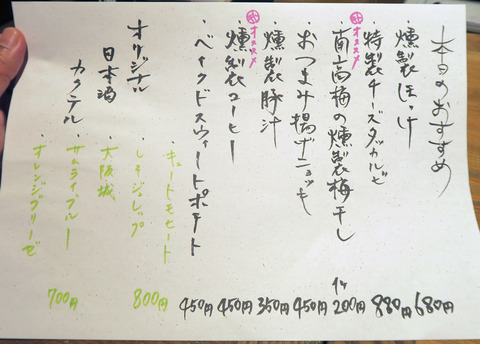 本日のおすすめ
・燻製ほっけ 680円
・特製チーズダッカルビ 880円
オススメ
・南高梅の燻製梅干し 1ヶ 200円
・おつまみ揚げニョッキ 450円
・燻製豚汁 350円
オススメ
・燻製コーヒー 450円
・ベイクドスウィートポテト 450円
オリジナル
日本酒
カクテル
・キュートモヒート
・しそジュレップ 800円
・大阪城
・サムライブルー
・オレンジブリーゼ 700円